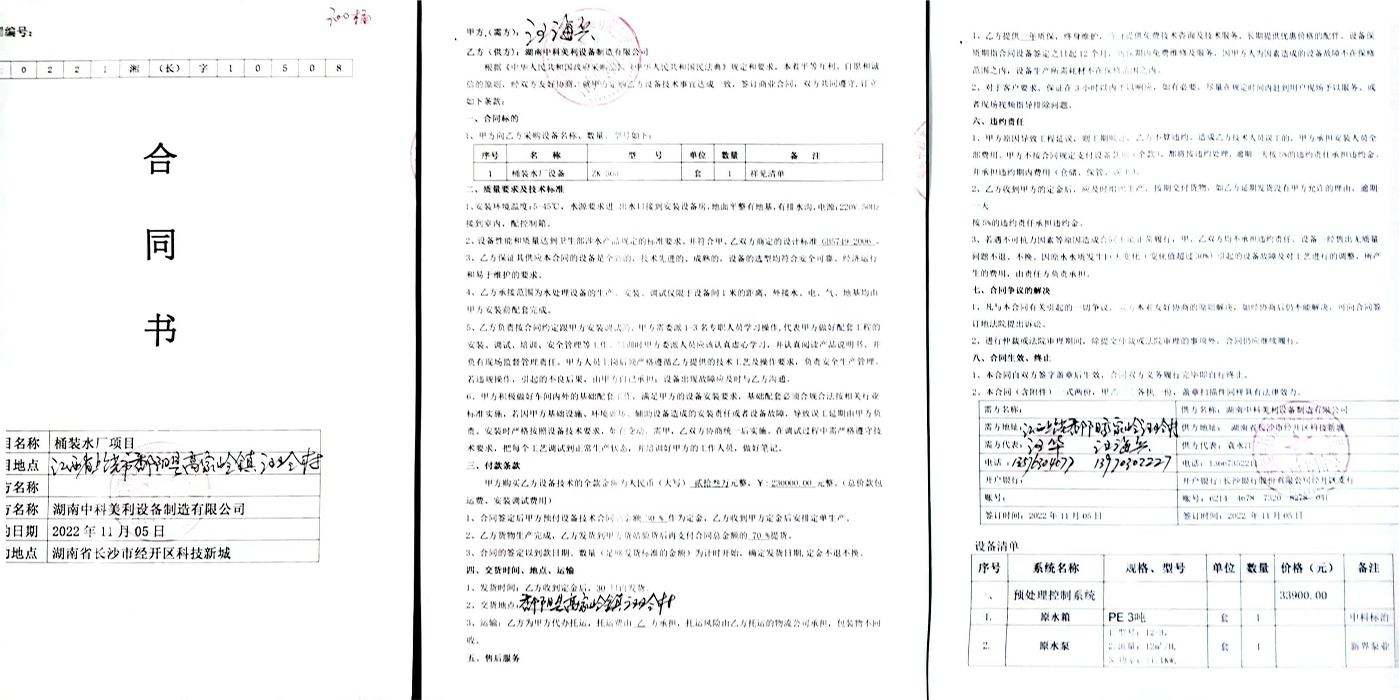 300桶
同编号：
0 2 2 1 测 （长） 字 1 0 5 0 8
合
同
书
目名称 桶装水厂项目
目地点 江西省上饶市鄱阳县高家岭镇汪岭村
方名称
方名称 湖南中科美利设备制造有限公司
约日期 2022 年 11 月 05 日
约地点 湖南省长沙市经开区科技新城
甲方（需方）：汪海兴
乙方（供方）：湖南中科美利设备制造有限公司
根据《中华人民共和国政府采购法》、《中华人民共和国民法典》规定和要求，本着平等互利、自愿和诚
信的原则，经双方友好协商，就甲方定购乙方设备技术事宜达成一致，签订商业合同，双方共同遵守，订立
如下条款：
一、合同标的
1、甲方向乙方采购设备名称、数量、型号如下：
序号 名 称 型 号 单位 数量 备 注
1 桶装水厂设备 ZK-300 套 1 样见清单
二、质量要求及技术标准
1、安装环境温度：5-45℃，水源要求进 出水口接到安装设备房，地面平整有地基，有排水沟，电源：220V/50Hz
接到室内，配控制箱。
2、设备性能和质量达到卫生部涉水产品规定的标准要求，并符合甲、乙双方商定的设计标准 GB5749-2006 。
3、乙方保证其供应本合同的设备是全新的，技术先进的、成熟的，设备的选型均符合安全可靠、经济运行
和易于维护的要求。
4、乙方承接范围为水处理设备的生产、安装、调试仅限于设备间 1 米的距离，外接水、电、气、地基均由
甲方安装前配套完成。
5、乙方负责按合同约定跟甲方安装调试的，甲方需要派 1-3 名专职人员学习操作，代表甲方做好配套工程的
安装、调试、培训、安全管等工作。培训时甲方委派人员应该认真虚心学习，并认真阅读产品说明书，并
负有现场监督管理责任。甲方人员上岗后须严格遵循乙方提供的技术工艺及操作要求，负责安全生产管理。
若违规操作，引起的不良后果，由甲方自己承担；设备出现故障应及时与乙方沟通。
6、甲方积极做好车间内外的基础配套工作，满足甲方的设备安装要求，基础配套必须合规合法按相关行业
标准实施，若因甲方基础设施、环境 、辅助设备造成的安装责任或者设备故障，导致误工延期由甲方负
责。安装时严格按照设备技术要求，如有变动，需甲、乙双方协商统一后实施。在调试过程中需严格遵守技
术要求，把每个工艺调试到正常生产状态，并培训好甲方的工作人员，做好笔记。
三、付款条款
甲方购买乙方设备技术的全款金额为人民币（大写） 贰拾叁万元整，¥：230000.00 元整。（总价款包
运费、安装调试费用）
1、合同签定后甲方预付设备技术合同总金额 30 % 作为定金，乙方收到甲方定金后安排定单生产。
2、乙方货物生产完成，乙方发货到甲方货站验货后再支付合同总金额的 70 %提货。
3、合同的签定以到款日期、数量（足够发货标准的金额）为计时开始，确定发货日期，定金不退不换。
四、交货时间、地点、运输
1、发货时间：乙方收到定金后，30 日内发货
2、交货地点：鄱阳县高家岭镇汪岭村
3、运输：乙方为甲方代办托运，托运费由 乙 方承担，托运风险由乙方托运的物流公司承担，包装物不回
收。
五、售后服务
1、乙方提供一年质保，终身维护，当日提供免费技术咨询及技术服务。长期提供优惠价格的配件。设备保
质期指合同设备签定之日起 12 个月，质保期内免费维修及服务，因甲方人为因素造成的设备故障不在保修
范围之内，设备生产所需耗材不在保修范围之内。
2、对于客户要求，保证在 3 小时以内予以响应，如有必要，尽量在规定时间内赶到用户现场予以服务，或
者现场视频指导排除问题。
六、违约责任
1、甲方原因导致工程延误，则工期顺延，乙方不算违约。造成乙方技术人员误工的，甲方承担安装人员全
部费用。甲方不按合同规定支付设备款项（全款），都将按违约处理，逾期一天按 5%的违约责任承担违约金，
并承担违约期内费用（仓储、保管、误工）。
2、乙方收到甲方的定金后，应及时组织生产，按期交付货物，如乙方延期发货没有甲方允许的理由，逾期
一天
按 5%的违约责任承担违约金。
3、若遇不可抗力因素等原因造成合同不能正常履行，甲、乙双方均不承担违约责任。设备一经售出无质量
问题不退、不换。因原水水质发生巨大变化（变化值超过 30%）引起的设备故障及对工艺进行的调整，所产
生的费用，由责任方负责承担。
七、合同争议的解决
1、凡与本合同有关引起的一切争议，双方本亚友好协商的原则解决，如经协商后仍不能解决，可向合同签
订地法院提出诉讼。
2、进行仲裁或法院审理期间，除提交仲裁或法院审理的事项外，合同仍应继续履行。
八、合同生效、终止
1、本合同自双方签字盖章后生效，合同双方义务履行完毕即自行终止。
2、本合同（含附件）一式两份，甲乙 各执一份，盖章扫描件同样具有法律效力。
需方名称： 供方名称：湖南中科美利设备制造有限公司
需方地址：江西上饶鄱阳高家岭汪岭村 供方地址：湖南省长沙市经开区科技新城
需方代表：汪华 汪海兴 供方代表：袁永江
电话：13576304077 13970302227 电话：13667352211
开户银行： 开户银行：长沙银行股份有限公司经开区支行
账号： 账号：6214 4678 7320 8278 031
签订时间：2022 年 11 月 05 日 签订时间：2022 年 11 月 05 日
设备清单
序号 系统名称 规格、型号 单位 数量 价格（元） 备注
一、 预处理控制系统 33900.00
1. 原水箱 PE 3吨 套 1 中科标洽
2. 原水泵 1.型号：12-3, 2.流量：12m³/H, 3.功率：1.1KW, 套 1 新界泵业